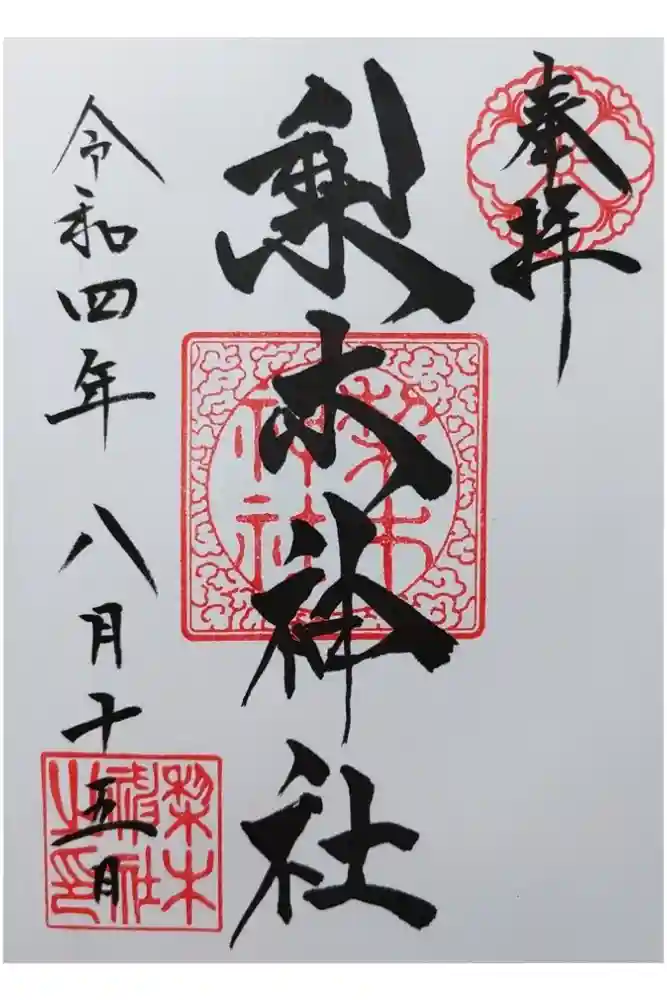 奉拝
梨木神社
令和四年八月十五日
梨木
神社
梨木
神社
之印